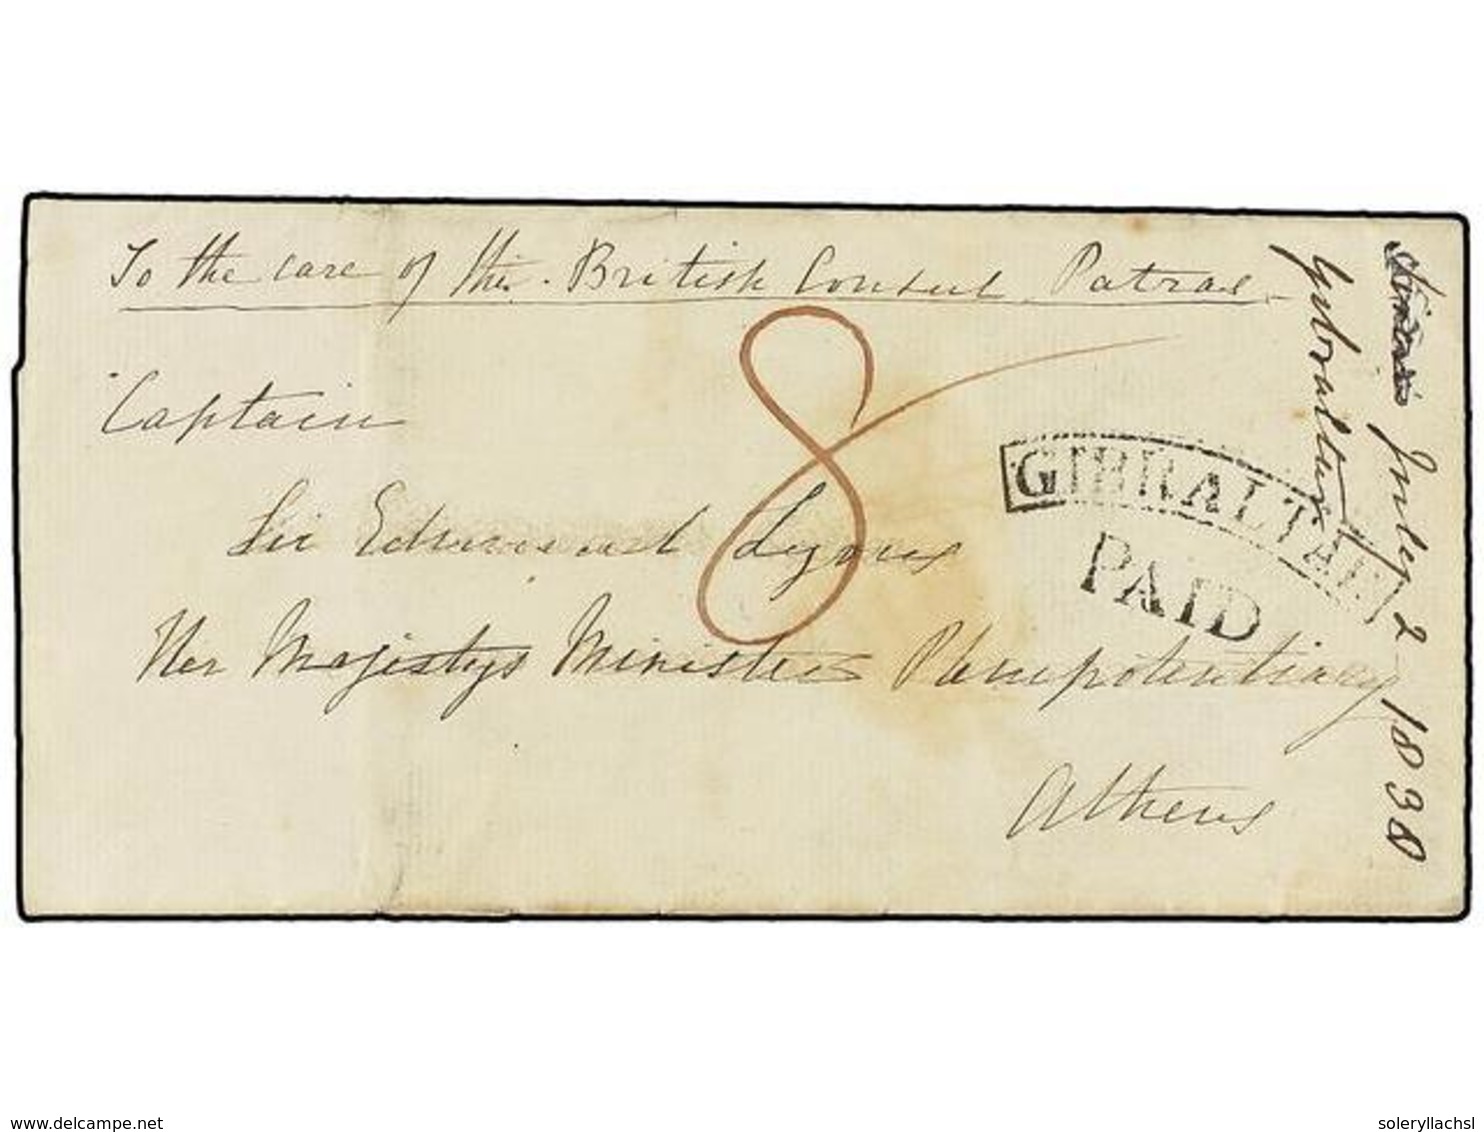 To the care of the British Consul Patras
Captain
8
Sir Edmund Lyons
GIBRALTAR
PAID
Her Majestys Minister Plenipotentiary
Athens
Gibraltar
July 2 1838
www.delcampe.net
soleryllachsl